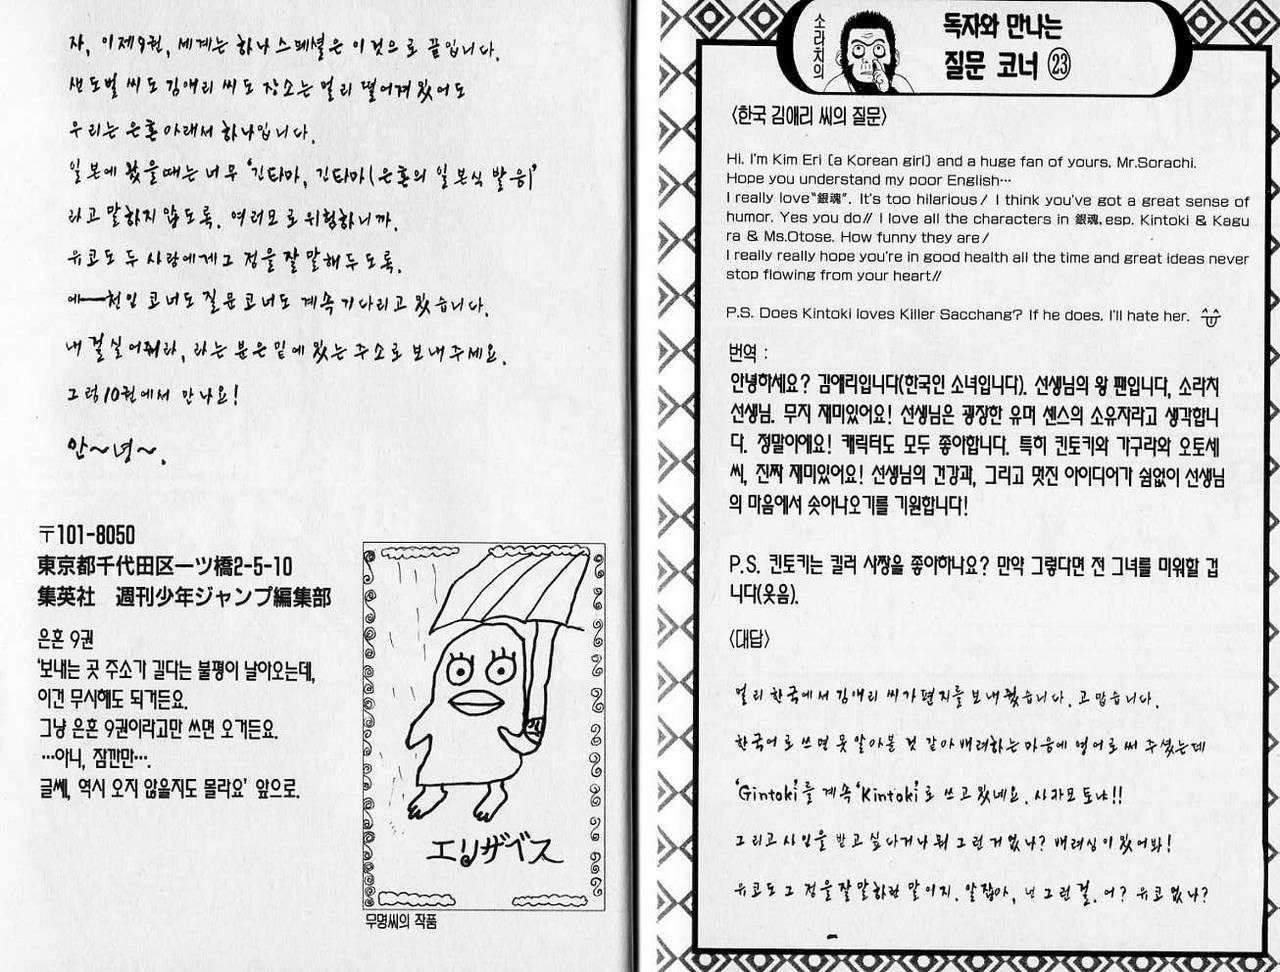 자, 이제 9권, 세계는 하나 스페셜은 이것으로 끝입니다.
샌도벌 씨도 김애리 씨도 장소는 멀리 떨어져 있어도
우리는 은혼 아래서 하나입니다.
일본에 왔을때는 너무 '긴타마, 긴타마(은혼의 일본식 발음)'
라고 말하지 않도록. 여러모로 위험하니까.
유코도 두 사람에게 그 점을 잘 말해두도록.
에──천인 코너도 질문코너도 계속 기다리고 있습니다.
내 걸 실어줘라, 라는 분은 밑에 있는 주소로 보내주세요.
그럼 10권에서 만나요!
안~녕~.
〒101-8050
東京都千代田区一ツ橋2-5-10
集英社 週刊少年ジャンプ編集部
은혼 9권
'보내는 곳 주소가 길다는 불평이 날아오는데,
이건 무시해도 되거든요.
그냥 은혼 9권이라고만 쓰면 오거든요.
…아니, 잠깐만….
글쎄, 역시 오지 않을지도 몰라요' 앞으로.
エリザベス
무명씨의 작품
소라치의
독자와 만나는
질문 코너 ㉓
〈한국 김애리 씨의 질문〉
Hi. I'm Kim Eri (a Korean girl) and a huge fan of yours, Mr.Sorachi.
Hope you understand my poor English…
I really love"銀魂". It's too hilarious/ I think you've got a great sense of
humor. Yes you do// I love all the characters in 銀魂, esp. Kintoki & Kagu
ra & Ms.Otose. How funny they are/
I really really hope you're in good health all the time and great ideas never
stop flowing from your heart//
P.S. Does Kintoki loves Killer Sacchang? If he does. I'll hate her. ^U^
번역 :
안녕하세요? 김애리입니다(한국인 소녀입니다). 선생님의 왕 팬입니다, 소라치
선생님. 무지 재미있어요! 선생님은 굉장한 유머 센스의 소유자라고 생각합니
다. 정말이에요! 캐릭터도 모두 좋아합니다. 특히 킨토키와 가구라와 오토세
씨, 진짜 재미있어요! 선생님의 건강과, 그리고 멋진 아이디어가 쉼없이 선생님
의 마음에서 솟아나오기를 기원합니다!
P.S. 킨토키는 킬러 사짱을 좋아하나요? 만약 그렇다면 전 그녀를 미워할 겁
니다(웃음).
〈대답〉
멀리 한국에서 김애리 씨가 편지를 보내줬습니다. 고맙습니다.
한국어로 쓰면 못 알아볼 것 같아 배려하는 마음에 영어로 써 주셨는데
'Gintoki'를 계속 'Kintoki'로 쓰고 있네요. 사카모토냐!!
그리고 사인을 받고 싶다거나 뭐 그런 거 없나? 배려심이 있어봐!
유코도 그 점을 잘 말하란 말이지. 알잖아, 넌 그런 걸. 어? 유코 없나?